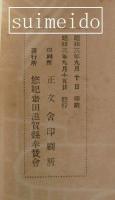 suimeido
昭和三年九月十日 印刷
昭和三年九月十五日 發行
印刷所 正文舍印刷所
發行所 悠紀齋田滋賀縣奉賛會